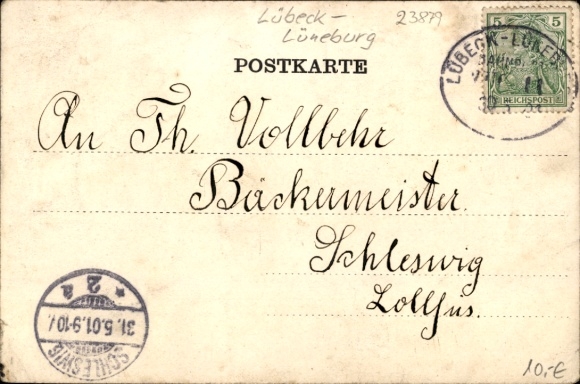 Lübeck-
Lüneburg
23879
5 5
REICHSPOST
LÜBECK-LÜNEB
BAHNP
11
POSTKARTE
An Th. Vollbehr
Bäckermeister
Schleswig
Lollfus.
2 a
31.5.01.9-10V.
SCHLESWIG
10,-€